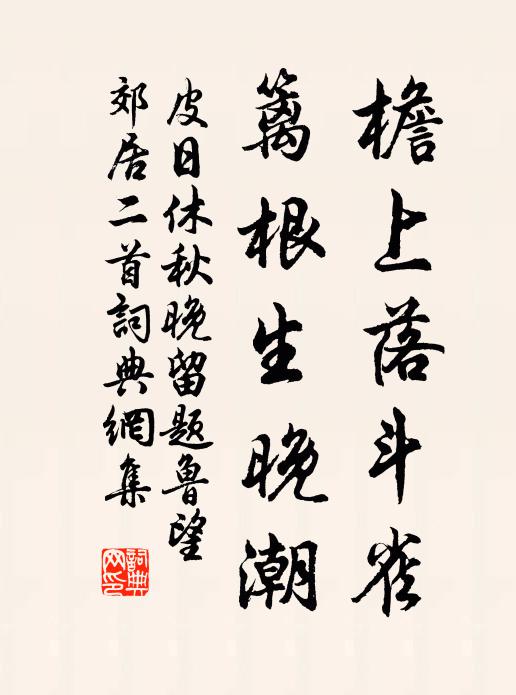 檐上落斗雀
篱根生晚潮
皮日休秋晚留题鲁望
郊居二首詞典網集
詞典
网印